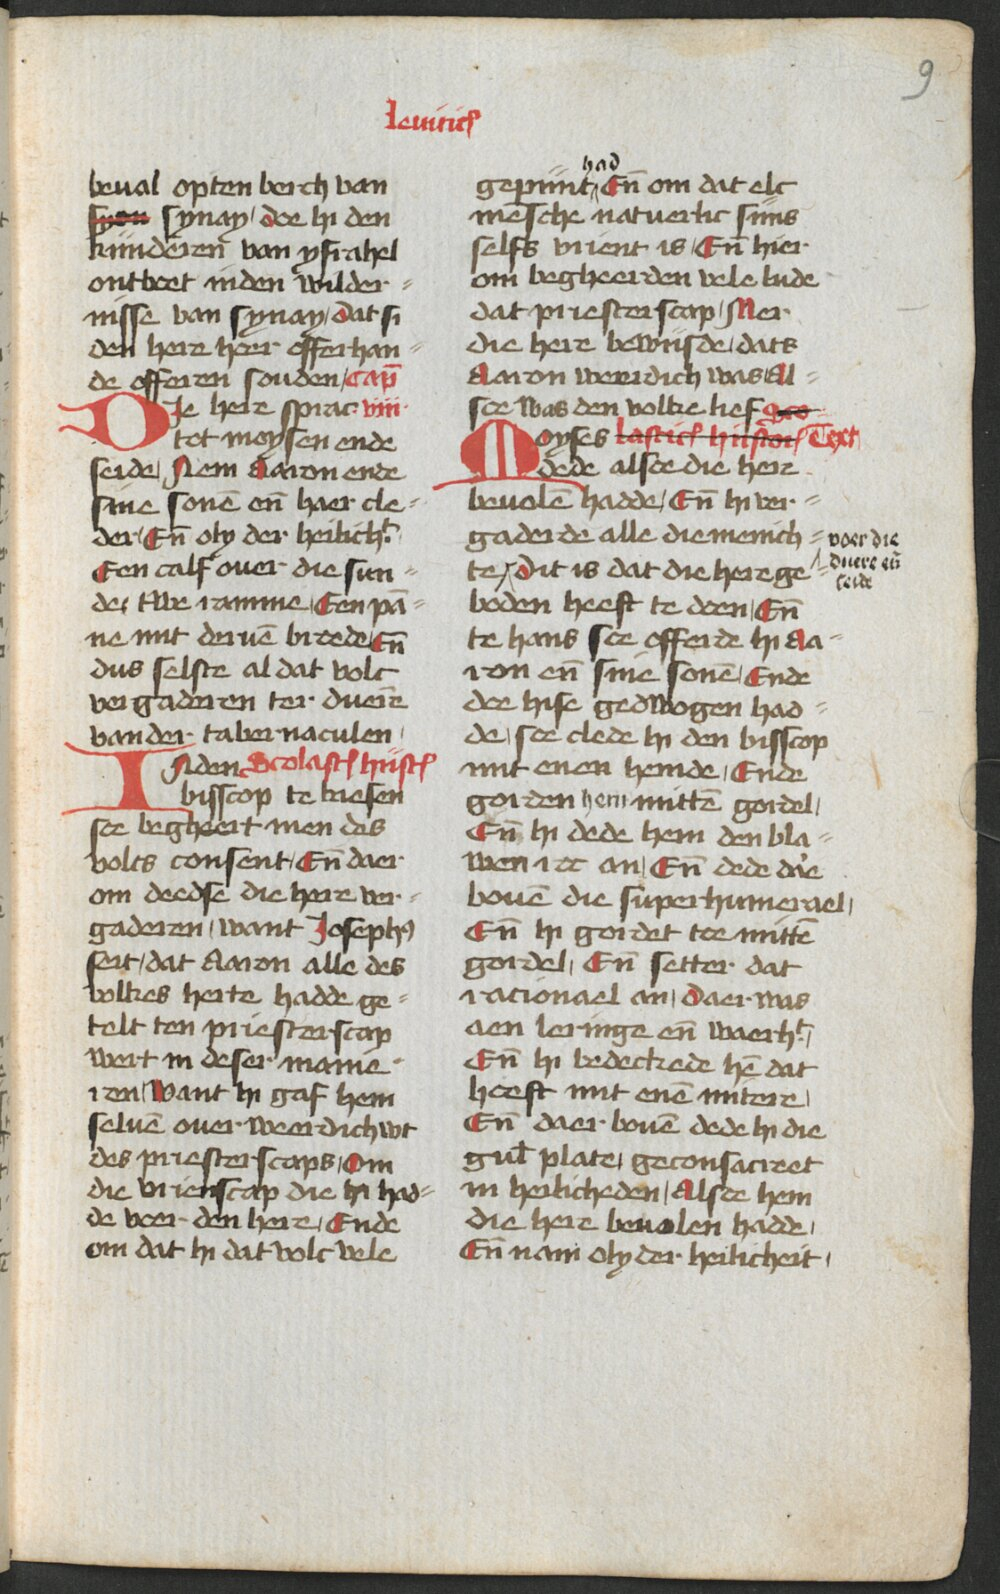 9
leuitic⁹
beual opten berch van
syon synay / doe hi den
kijnderen van ysrahel
ontboet inden wilder-
nisse van synay / dat si
den here heer offerhan-
de offeren souden / cap̄
Die here sprac viii·
tot moysen ende
seide / Nem Aaron ende
sine sonē en̄ haer cle-
der / En̄ oly der heilich.t
Een calf ouer die sun-
de / twe ramme / Een pā-
ne mit deruē brode / En̄
dus selste al dat volc
vergaderen ter duerē
vander tabernaculen /
INden Scolast⁹ hijst⁹
bisscop te kiesen
soe begheert men des
volcs consent / En̄ daer
om deedse die here ver-
gaderen / want Joseph⁹
seit / dat Aaron alle des
volkes herte hadde ge-
telt ten priesterscap
wert in deser manie-
ren / Want hi gaf hem
seluē ouer weerdich wt
des priesterscaps / Om
die vrienscap die hi had-
de voer den here / Ende
om dat hi dat volc vele
had
geprint / En̄ om dat elc
mēsche natuerlic sijns
selfs vrient is / En̄ hier
om begheerden vele lude
dat priesterscap / Mer
die here bewijsde / dats
Aaron weerdich was / Al-
soe was den volke lief sco-
Moyses lastic⁹ hijstori⁹ Text
dede alsoe die here
beuolē hadde / En̄ hi ver-
gaderde alle die menich-
te / dit is dat die here ge-
boden heeft te doen / En̄
te hans soe offerde hi Aa-
ron en̄ sine sonē / Ende
doe hise gedwogen had-
de / soe clede hi den bisscop
mit enen hemde / Ende
gorden hem mittē gordel /
En̄ hi dede hem den bla-
wen roc an / En̄ dede dʼe
bouē die superhumerael /
En̄ hi gordet toe mittē
gordel / En̄ setter dat
racionael an / daer was
aen leringe en̄ waerh.t /
En̄ hi bedeckede hē dat
hoeft mit enē mitere /
En̄ daer bouē dede hi die
gul̄ plate / geconsacreet
in heilicheden / Alsoe hem
die here beuolen hadde /
En̄ nam oly der heilicheit /
voer die
duere en̄
seide